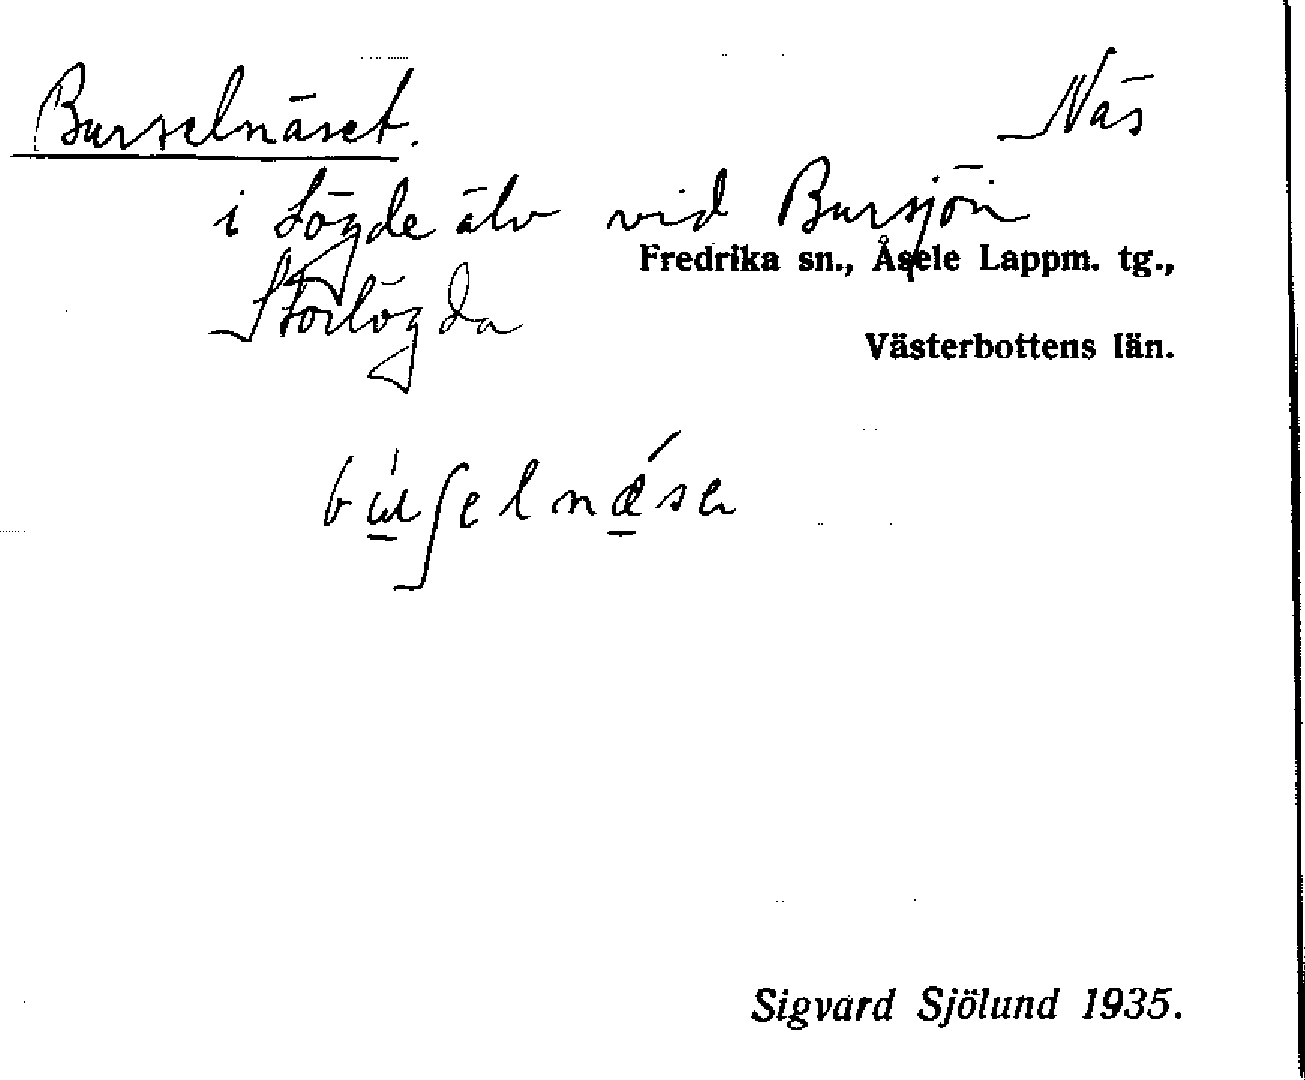 Burselnäset. Näs
i Lögde älv vid Bursjön
Fredrika sn., Åsele Lappm. tg.,
Storlögda
Västerbottens län.
bu̲ʃelnæ̲se
Sigvard Sjölund 1935.